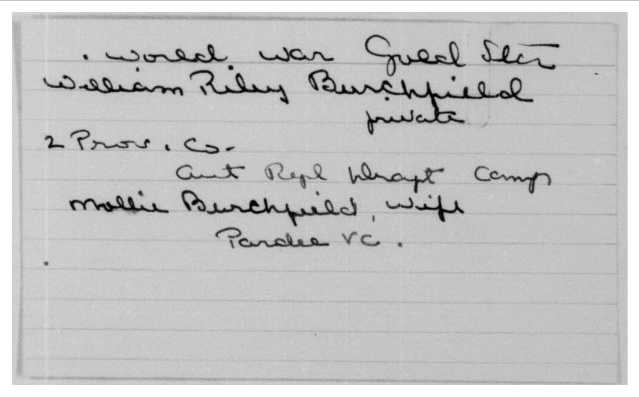 World War Gold Star
William Riley Burchfield
private
2 Prov. Co.
Aut Repl Draft Camp
Mollie Burchfield, Wife
Pardee Va.